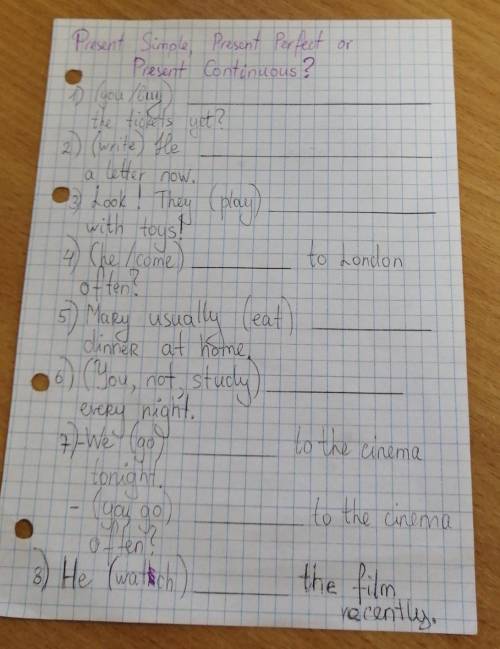 Present Simple, Present Perfect or
Present Continuous?
1) (you/buy) ____________
the tickets yet?
2) (write) He ____________
a letter now.
3) Look! They (play) ____________
with toys!
4) (he/come) ________ to London
often?
5) Mary usually (eat) ________
dinner at home.
6) (You, not, study) ________
every night.
7) - We (go) ________ to the cinema
tonight.
- (you go) ________ to the cinema
often?
8) He (watch) ________ the film
recently.